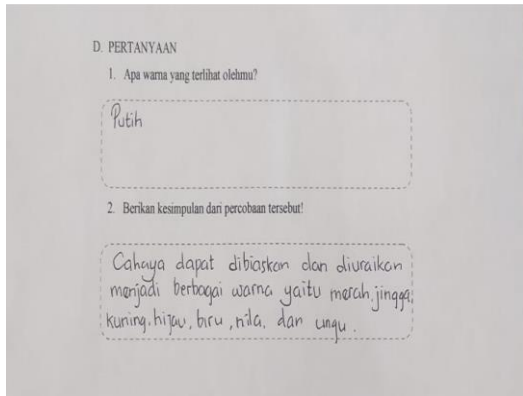 D. PERTANYAAN
1. Apa warna yang terlihat olehmu?
Putih
2. Berikan kesimpulan dari percobaan tersebut!
Cahaya dapat dibiaskan dan diuraikan
menjadi berbagai warna yaitu merah, jingga,
kuning, hijau, biru, nila, dan ungu.